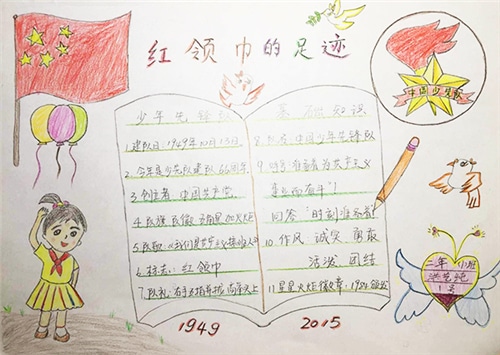 红领巾的足迹
中国少先队
少年先锋队
1.建队日:1949年10月13日
2.今年是少先队建队66周年
3.创立者:中国共产党
4.队旗 队徽:五角星加火炬
5.队歌:《我们是共产主义接班人》
6.标志:红领巾
7.队礼:右手五指并拢 高举头上
基础知识
8.队名:中国少年先锋队
9.呼号:准备着为共产主义
事业而奋斗!
回答"时刻准备着!
10.作风 诚实 勇敢
活泼 团结
11.星星火炬
1949
2015
二年 小班
1号